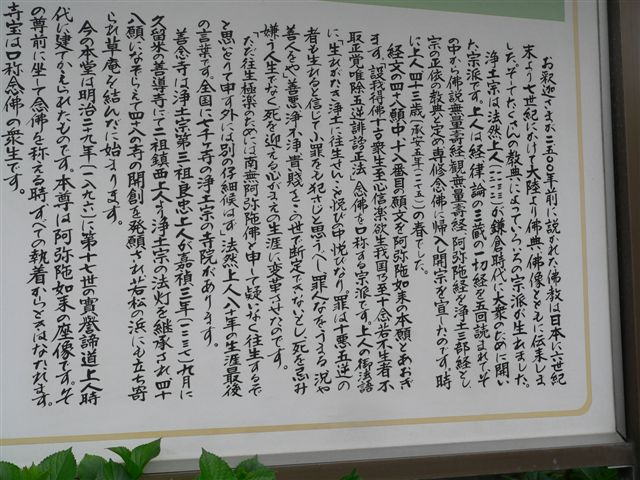 お釈迦さまが二五〇〇年前に説かれた佛教は日本に六世紀
末から七世紀にかけて大陸より佛典、佛像とともに伝来しま
した。そしてたくさんの教典によっていろいろの宗派が生れました。
浄土宗は法然上人(一一三三)が鎌倉時代に大衆のために開い
た宗派です。上人は経、律、論の三蔵の一切経を五回読まれてそ
の中から佛説無量壽経、観無量壽経、阿弥陀経を浄土三部経とし
宗の正依の教典と定め専修念佛に帰入し開宗を宣したのです。時
に上人四十三歳(承安五年(一一七五)の春でした。
経文の四十八願中、十八番目の願文を阿弥陀如来の本願とあおぎ
ます。「設我得佛十方衆生至心信楽欲生我国乃至十念若不生者不
取正覚唯除五逆誹謗正法」念佛を口称する宗派です。上人の御法語
に「生れがたき浄土に往生せんこと悦びの中の悦びなり。罪は十悪五逆の
者も生れると信じて小罪をも犯さじと思うべし罪人なをうまる、況や
善人をや」善悪、浄不浄、貴賤をこの世で断定できないとし死を忌み
嫌う人生でなく死を迎える心がまえの生涯に変革させたのです。
「ただ往生極楽のためには南無阿弥陀佛と申して疑なく往生するぞ
と思いとりて申す外には別の仔細候はず」法然上人八十年の生涯最後
の言葉です。全国に七千ヶ寺の浄土宗の寺院があります。
善念寺は浄土宗第三祖良忠上人が嘉禎三年(一二三七)九月に
久留米の善導寺にて二祖鎮西上人より浄土宗の法灯を継承され四十
八願になぞらえて四十八寺の開創を発願され若松の浜にも立ち寄
られ草庵を結んだに始まります。
今の本堂は明治二十九年(一八九六)に第十七世の實誉諦道上人時
代に建てかえられたものです。本尊は阿弥陀如来の座像です。そ
の尊前に坐して念佛を称える時、すべての執着からときはなたれます。
寺宝は口称念佛の衆生です。